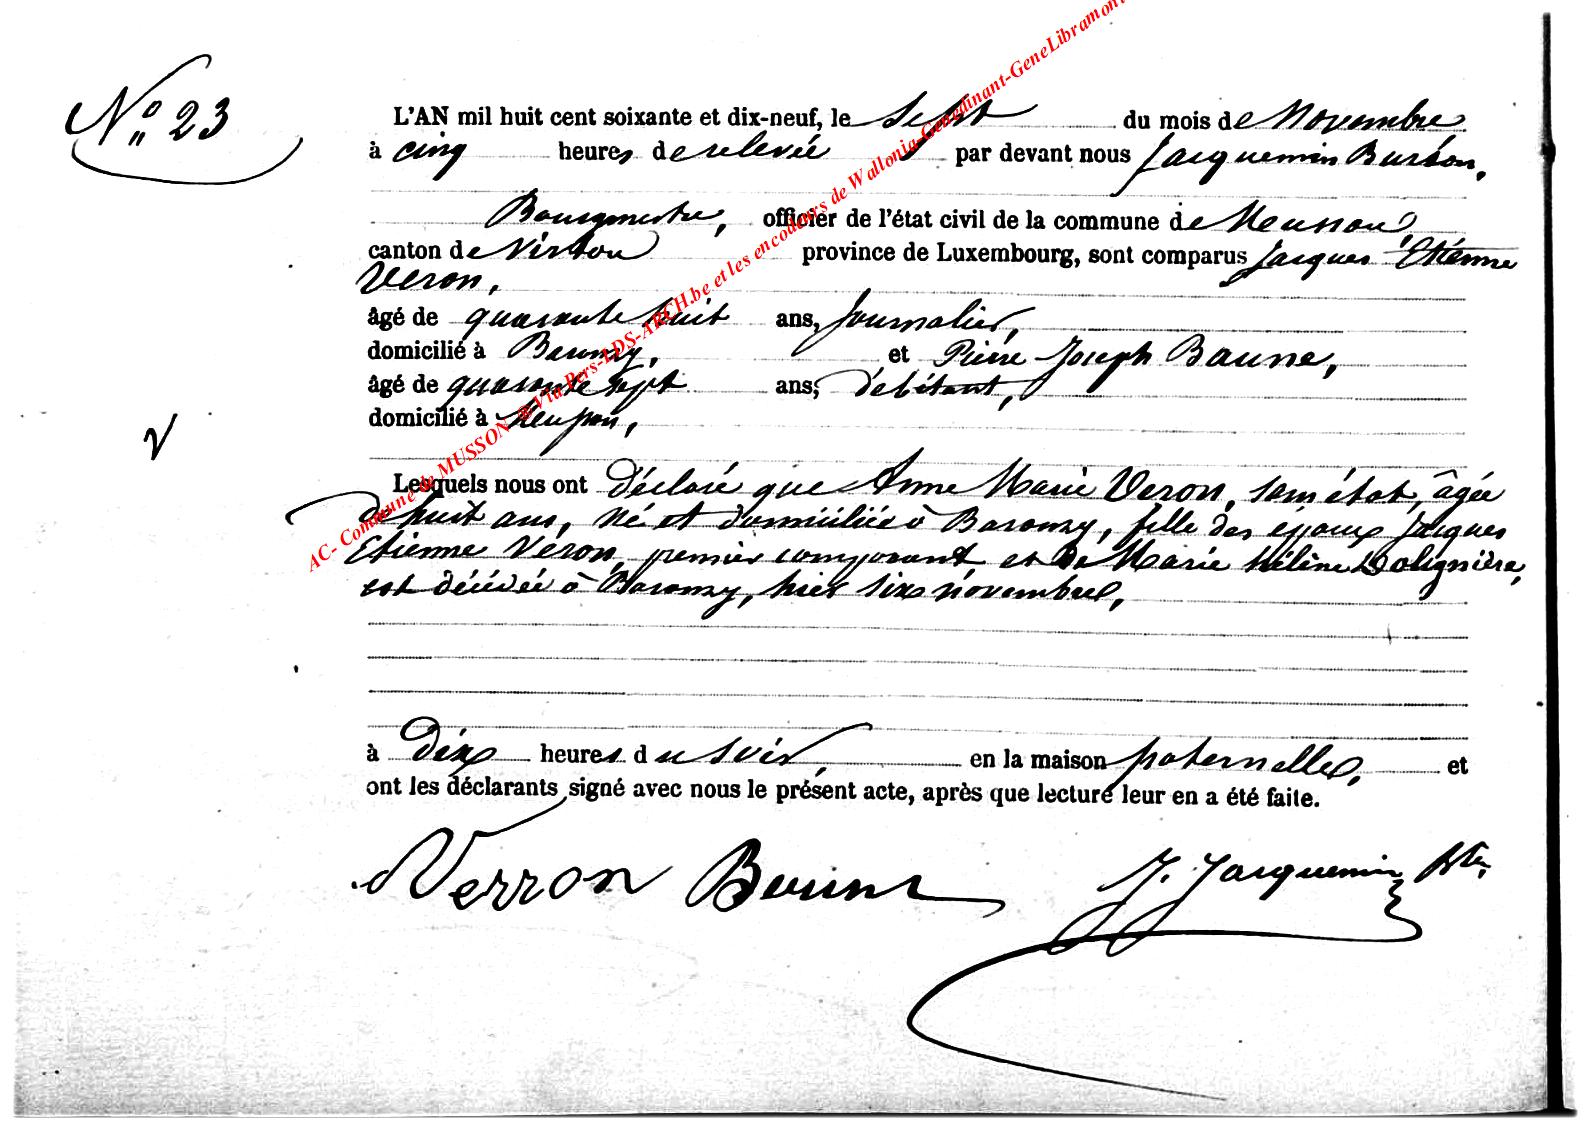 N° 23
L'AN mil huit cent soixante et dix-neuf, le Sept du mois de Novembre
à cinq heures de relevée par devant nous Jacquemin Burton,
Bourgmestre, officier de l'état civil de la commune de Musson,
canton de Virton province de Luxembourg, sont comparus Jacques Etienne
Veron,
âgé de quarante huit ans, journalier,
domicilié à Baranzy, et Pierre Joseph Baune,
âgé de quarante sept ans, débitant,
domicilié à Musson,
Lesquels nous ont déclaré que Anne Marie Veron, sans état, âgée
de huit ans, né et domiciliée à Baranzy, fille des époux Jacques
Etienne Véron, premier comparant et de Marie Hélène
est décédée à Baranzy, hier six novembre,
à dix heures du soir, en la maison paternelle, et
ont les déclarants signé avec nous le présent acte, après que lecture leur en a été faite.
Verron J. Jacquemin Btn
AC- Commune de MUSSON Via Pers-LDS-ARCH.be et les encodeurs de Wallonia-Genedinant-GeneLibramont